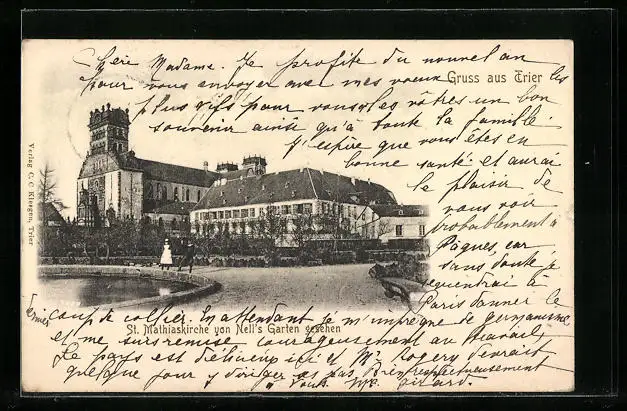 Chère Madame. Je profite du nouvel an
pour vous envoyer avec mes vœux
Gruss aus Trier
les
plus vifs pour vous les vôtres un bon
souvenir ainsi qu'à toute la famille.
J'espère que vous êtes en
bonne santé et aurai
le plaisir de
vous voir
probablement à
Pâques, car
sans doute je
à
Paris donner le
dernier
coup de collier. En attendant je m'imprègne de germanisme
St. Mathiaskirche von Nell's Garten gesehen
et me suis remise courageusement au travail
Le pays est délicieux ici et Mr. devrait
quelque jour y diriger ses pas. Bien respectueusement
à vous
Verlag C. C. Kliesgen, Trier